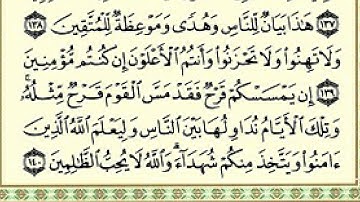 ١٣٧ هَٰذَا بَيَانٌ لِّلنَّاسِ وَهُدًى وَمَوْعِظَةٌ لِّلْمُتَّقِينَ ١٣٨
وَلَا تَهِنُوا۟ وَلَا تَحْزَنُوا۟ وَأَنتُمُ ٱلْأَعْلَوْنَ إِن كُنتُم مُّؤْمِنِينَ
١٣٩ إِن يَمْسَسْكُمْ قَرْحٌ فَقَدْ مَسَّ ٱلْقَوْمَ قَرْحٌ مِّثْلُهُۥ ۚ
وَتِلْكَ ٱلْأَيَّامُ نُدَاوِلُهَا بَيْنَ ٱلنَّاسِ وَلِيَعْلَمَ ٱللَّهُ ٱلَّذِينَ
ءَامَنُوا۟ وَيَتَّخِذَ مِنكُمْ شُهَدَآءَ ۗ وَٱللَّهُ لَا يُحِبُّ ٱلظَّٰلِمِينَ ١٤٠